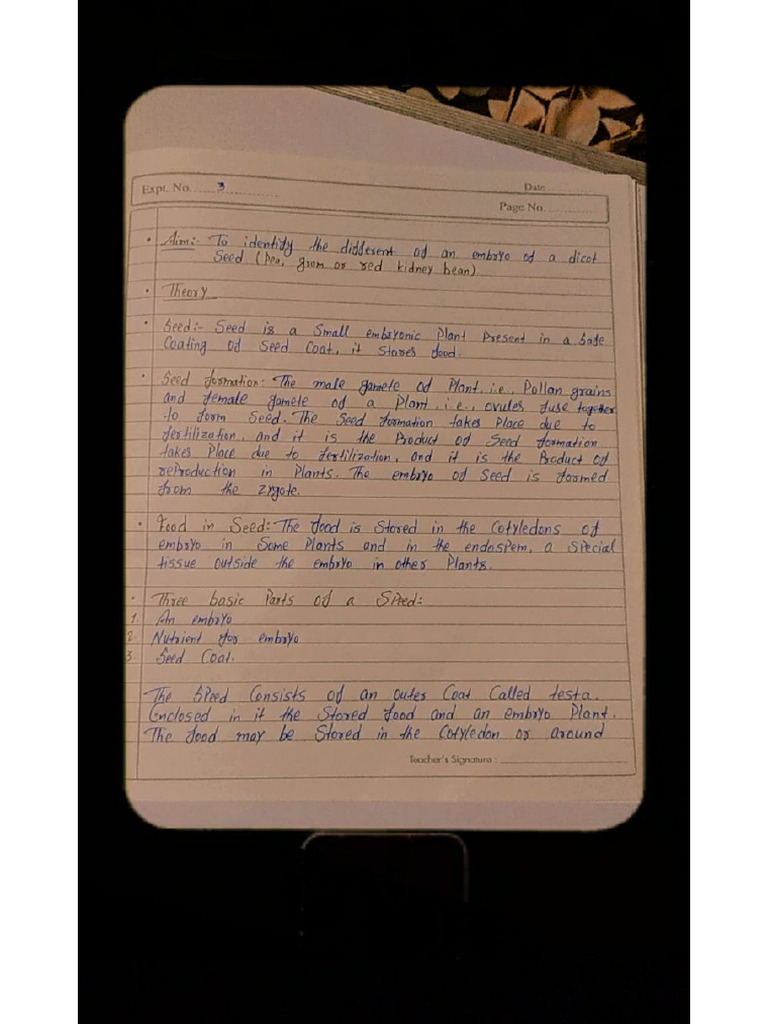 Expt. No. 3
Date
Page No.
• Aim:- To identify the different of an embryo of a dicot
Seed (Pea, gram or red kidney bean)
• Theory
• Seed:- Seed is a Small embryonic Plant Present in a Safe
Coating of Seed Coat, it Stores food.
• Seed formation: The male gamete of Plant, i.e., Pollan grains
and female gamete of a Plant, i.e., ovules fuse together
to form Seed. The Seed formation takes Place due to
fertilization, and it is the Product of Seed formation
takes Place due to fertilization, and it is the Product of
reproduction in Plants. The embryo of Seed is formed
from the zygote.
• Food in Seed: The food is Stored in the Cotyledons of
embryo in Some Plants and in the endospem, a Special
tissue outside the embryo in other Plants.
• Three basic Parts of a Speed:
1. An embryo
2. Nutrient for embryo
3. Seed Coat.
The Speed Consists of an outer Coat Called testa.
Enclosed in it the Stored food and an embryo Plant.
The food may be Stored in the Cotyledon or around
Teacher's Signature :